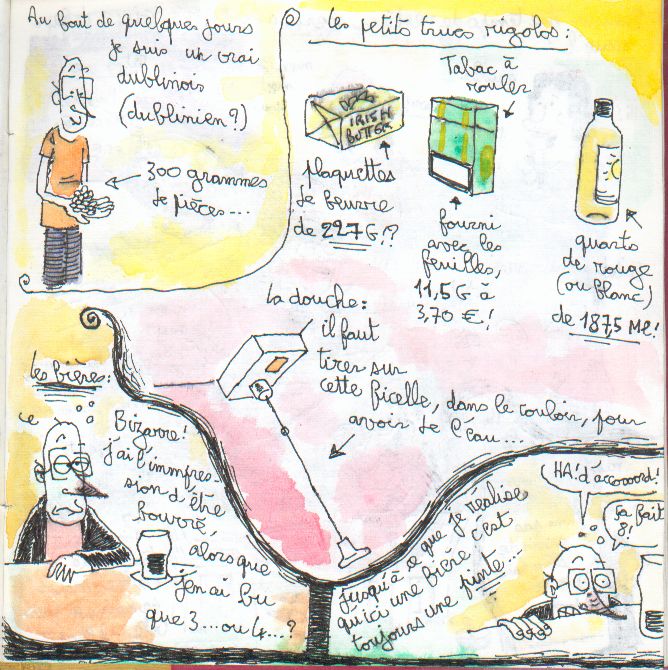 Au bout de quelques jours
je suis un vrai
dublinois
(dublinien?)
300 grammes
de pièces...
les petits trucs rigolos:
IRISH
BUTTER
plaquettes
de beurre
de 227G!?
Tabac à
rouler
fourni
avec les
feuilles,
11,5 G à
3,70 €!
quarts
de rouge
(ou blanc)
de 187,5 ML!
La douche:
il faut
tirer sur
cette ficelle, dans le couloir, pour
avoir de l'eau...
les bières:
Bizarre!
j'ai l'impres-
sion d'être
bourré,
alors que
j'en ai bu
que 3... ou 4...?
jusqu'à ce que je réalise
qu'ici une bière c'est
toujours une pinte...
HA! d'accooord!
ça fait
8!